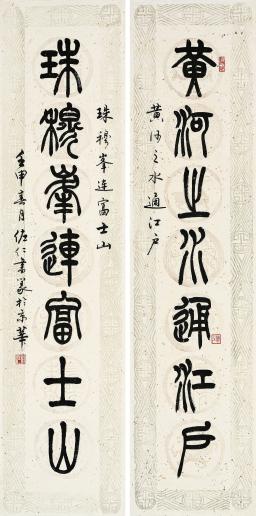 黄河之水通江戶
黄河之水通江户
珠穆峯連富士山
珠穆峯连富士山
壬申春月佐仁書篆於京華